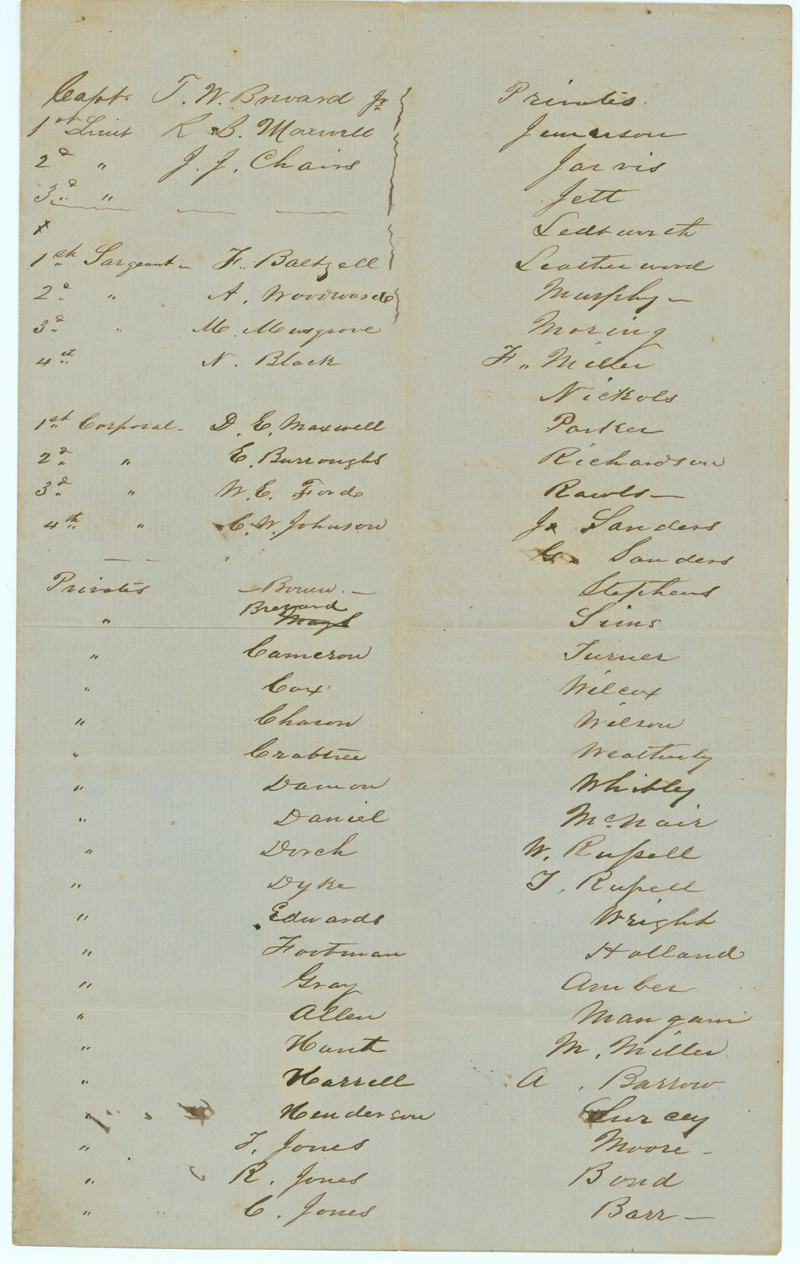 Capt. T. W. Brevard Jr.
1st Lieut R. B. Maxwell
2d " J. J. Chairs
3d "
x
1st Sargeant - F. Baltzell
2d " A. Woodwards
3d " M. Musgrove
4st N. Black
1st Corporal - D. E. Maxwell
2d " E. Burroughs
3d " W. E. Forde
4th " C. W. Johnson
Privates
" Brevard
" Cameron
" Cox
" Chason
" Crabtree
" Damon
" Daniel
" Dorch
" Dyke
" Edwards
" Footman
" Gray
" Allen
" Hunt
" Harrell
" Henderson
" T. Jones
" R. Jones
" C. Jones
Privates.
Jemerson
Jarvis
Jett
Ledtworth
Leatherwood
Murphy -
Moring
F. Miller
Nickols
Parker
Richardson
Rawls -
Sanders
Sanders
Stephens
Sims
Turner
Wilcox
Wilson
Weatherly
Whitly
McNair
W. Russell
T. Russell
Wright
Holland
Amber
Mangum
M. Miller
A. Barrow
Moore -
Bond
Barr -